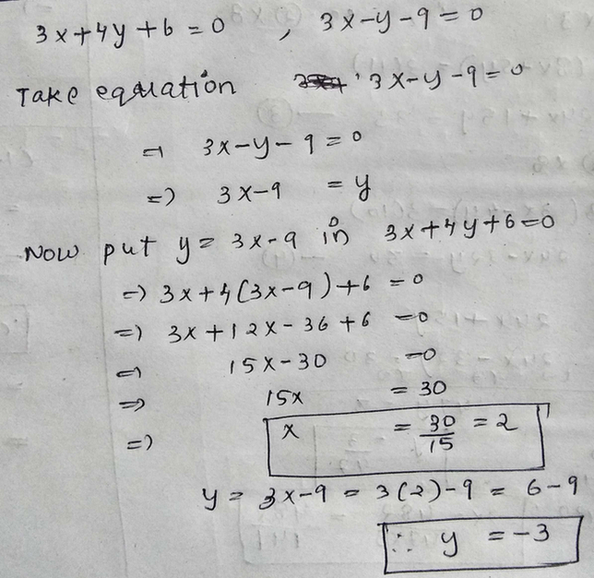 3x+4y+6=0 , 3x-y-9=0
Take equation 3x-y-9=0
=) 3x-y-9=0
=) 3x-9 = y
Now put y= 3x-9 in 3x+4y+6=0
=) 3x+4(3x-9)+6 =0
=) 3x+12x-36+6 =0
=) 15x-30 =0
=) 15x = 30
=) x = 30/15 = 2
y = 3x-9 = 3(2)-9 = 6-9
∴ y = -3